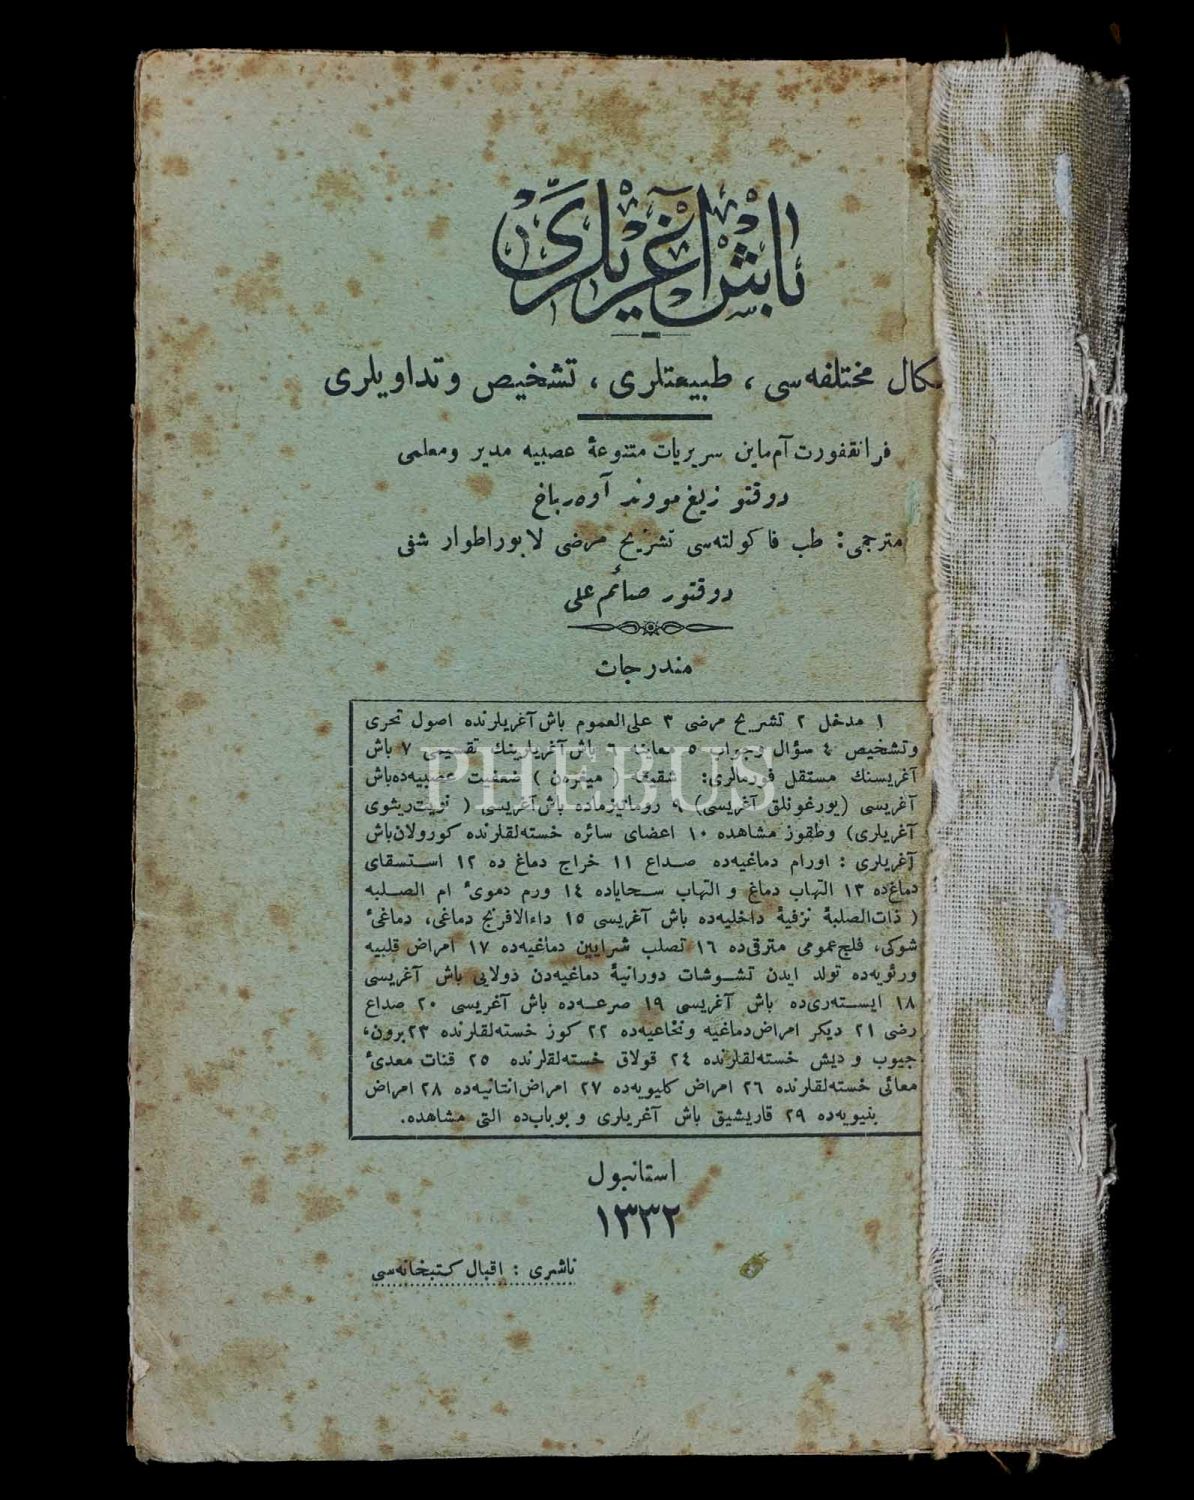 باش آغریلری
كال مختلفه‌سی ، طبیعتلری ، تشخیص و تداویلری
فرانقفورت آم‌ماین سریریات متنوعهٔ عصبیه مدیر و معلمی
دوقتو زیغ‌موند آوه‌رباخ
مترجمی : طب فاكولته‌سی تشریح مرضی لابوراطوار شفی
دوقتور صائم علی
مندرجات
١ مدخل ٢ تشریح مرضی ٣ علی‌العموم باش آغریلرنده اصول تحری
و تشخیص ٤ سؤال و جواب ٥ معاینه ٦ باش آغریلرینك تقسیمی ٧ باش
آغریسنك مستقل فورمالری: شقیقه ( میغره‌ن ) ضعفیت عصبیه‌ده باش
آغریسی (یورغونلق آغریسی) ٩ روماتیزماده باش آغریسی (
آغریلری) و طقوز مشاهده ١٠ اعضای سائره خسته‌لقلرنده كورولان باش
آغریلری : اورام دماغیه‌ده صداع ١١ خراج دماغ ده ١٢ استسقای
دماغ‌ده ١٣ التهاب دماغ و التهاب سحایاده ١٤ ورم دموئ ام الصلبه
( ذات‌الصلبهٔ نزفیهٔ داخلیه‌ده باش آغریسی ١٥ داءالافرنج دماغی، دماغئ
شوكی، فلج عمومی مترقی‌ده ١٦ تصلب شرایین دماغیه‌ده ١٧ امراض قلبیه
ورئویه‌ده تولد ایدن تشوشات دورانیهٔ دماغیه‌دن دولایی باش آغریسی
١٨ ایسته‌ری‌ده باش آغریسی ١٩ صرعه‌ده باش آغریسی ٢٠ صداع
رضی ٢١ دیكر امراض دماغیه و نخاعیه‌ده ٢٢ كوز خسته‌لقلرنده ٢٣ برون،
جیوب و دیش خسته‌لقلرنده ٢٤ قولاق خسته‌لقلرنده ٢٥ قنات معدئ
معائی خسته‌لقلرنده ٢٦ امراض كلیویه‌ده ٢٧ امراض انتانیه‌ده ٢٨ امراض
بنیویه‌ده ٢٩ قاریشیق باش آغریلری و بو باب‌ده التی مشاهده.
استانبول
١٣٣٢
ناشری : اقبال كتبخانه‌سی
PHEBUS